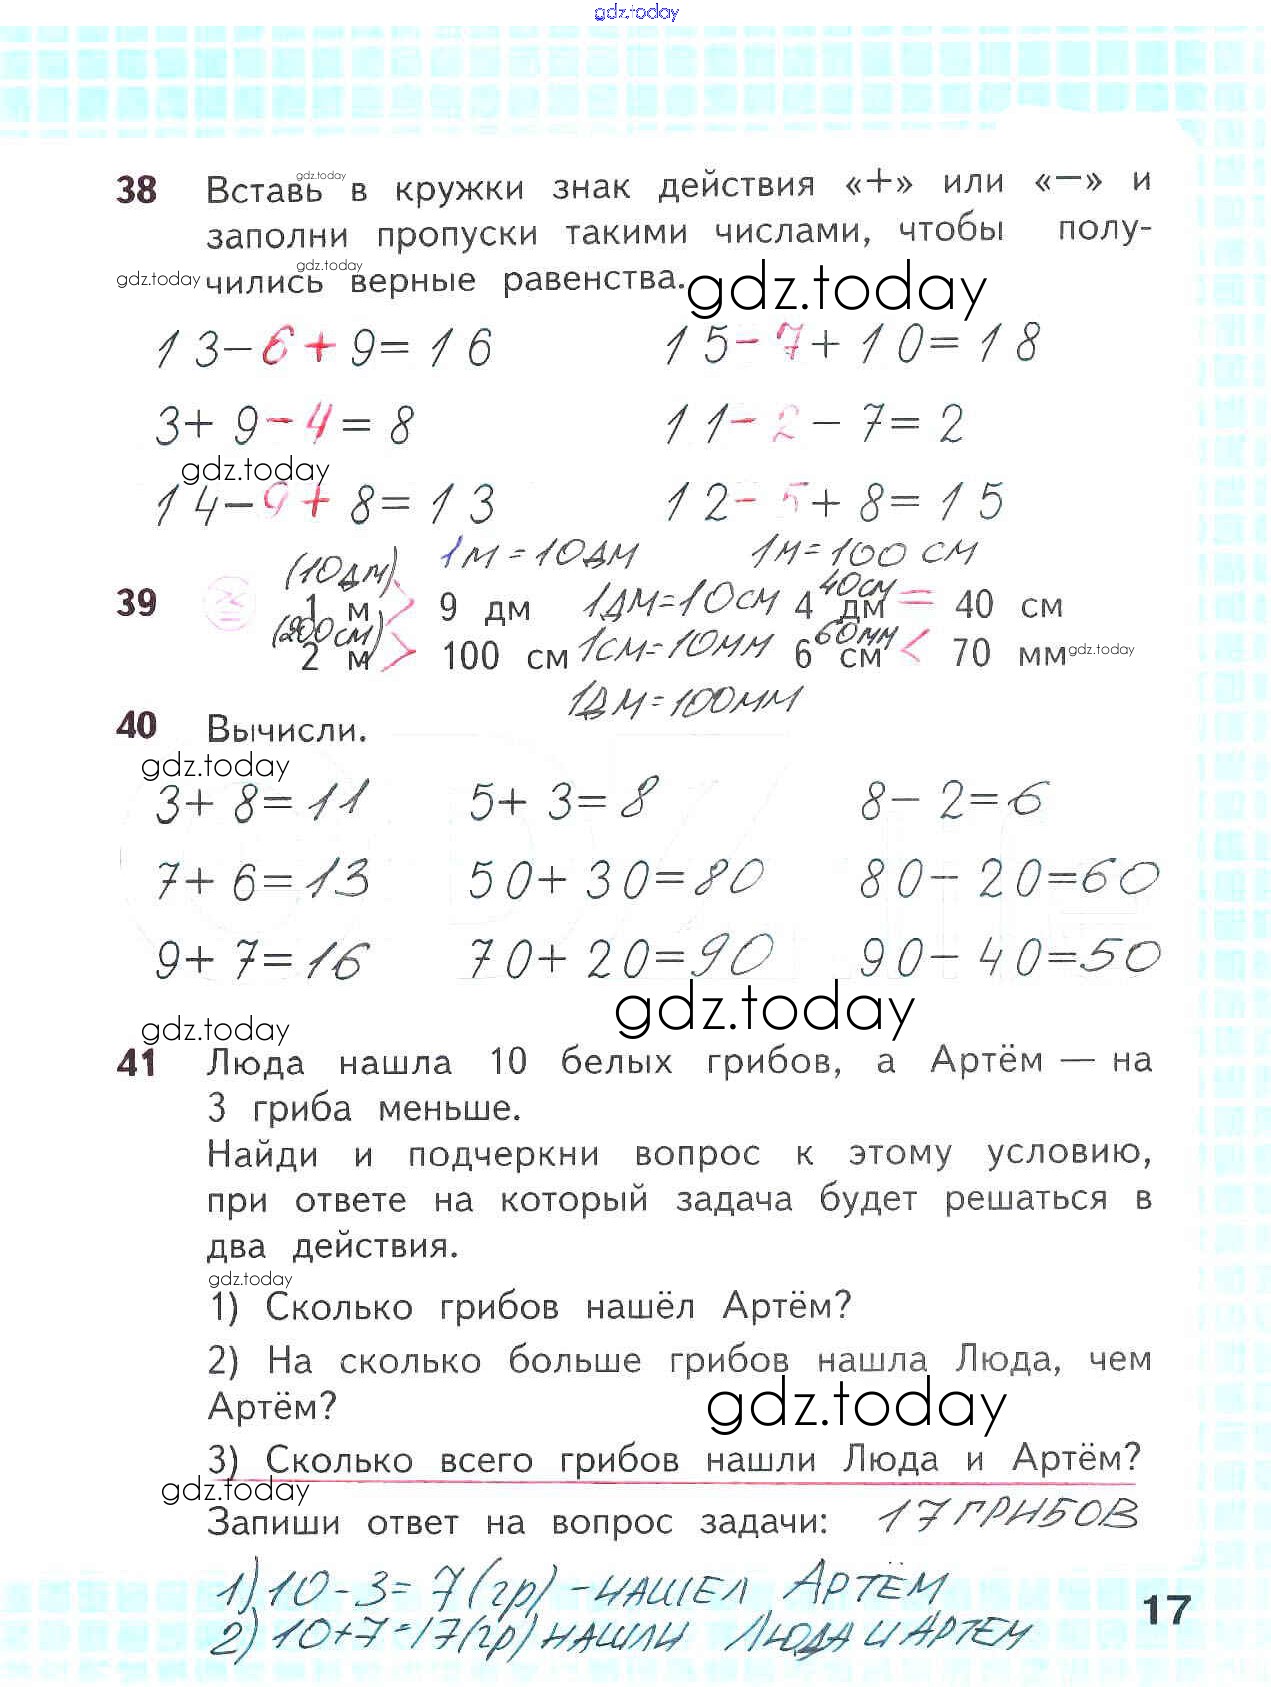 gdz.today
38 Вставь в кружки знак действия «+» или «−» и
gdz.today
заполни пропуски такими числами, чтобы полу-
gdz.today
gdz.today чились верные равенства.
gdz.today
13−6+9=16 15−7+10=18
3+9−4=8 11−2−7=2
gdz.today
14−9+8=13 12−5+8=15
(10дм) 1м=10дм 1м=100 см
39 1 м > 9 дм 1дм=10см 4 дм = 40 см
40см
(200см) 2 м > 100 см 1см=10мм 6 см < 70 мм gdz.today
60мм
1дм=100мм
40 Вычисли.
gdz.today
3+8=11 5+3=8 8−2=6
7+6=13 50+30=80 80−20=60
9+7=16 70+20=90 90−40=50
gdz.today
gdz.today
41 Люда нашла 10 белых грибов, а Артём — на
3 гриба меньше.
Найди и подчеркни вопрос к этому условию,
при ответе на который задача будет решаться в
два действия.
gdz.today
1) Сколько грибов нашёл Артём?
2) На сколько больше грибов нашла Люда, чем
Артём?
gdz.today
3) Сколько всего грибов нашли Люда и Артём?
gdz.today
Запиши ответ на вопрос задачи: 17 ГРИБОВ
1) 10−3=7(гр)-НАШЕЛ АРТЁМ
2) 10+7=17(гр) НАШЛИ ЛЮДА И АРТЕМ
17